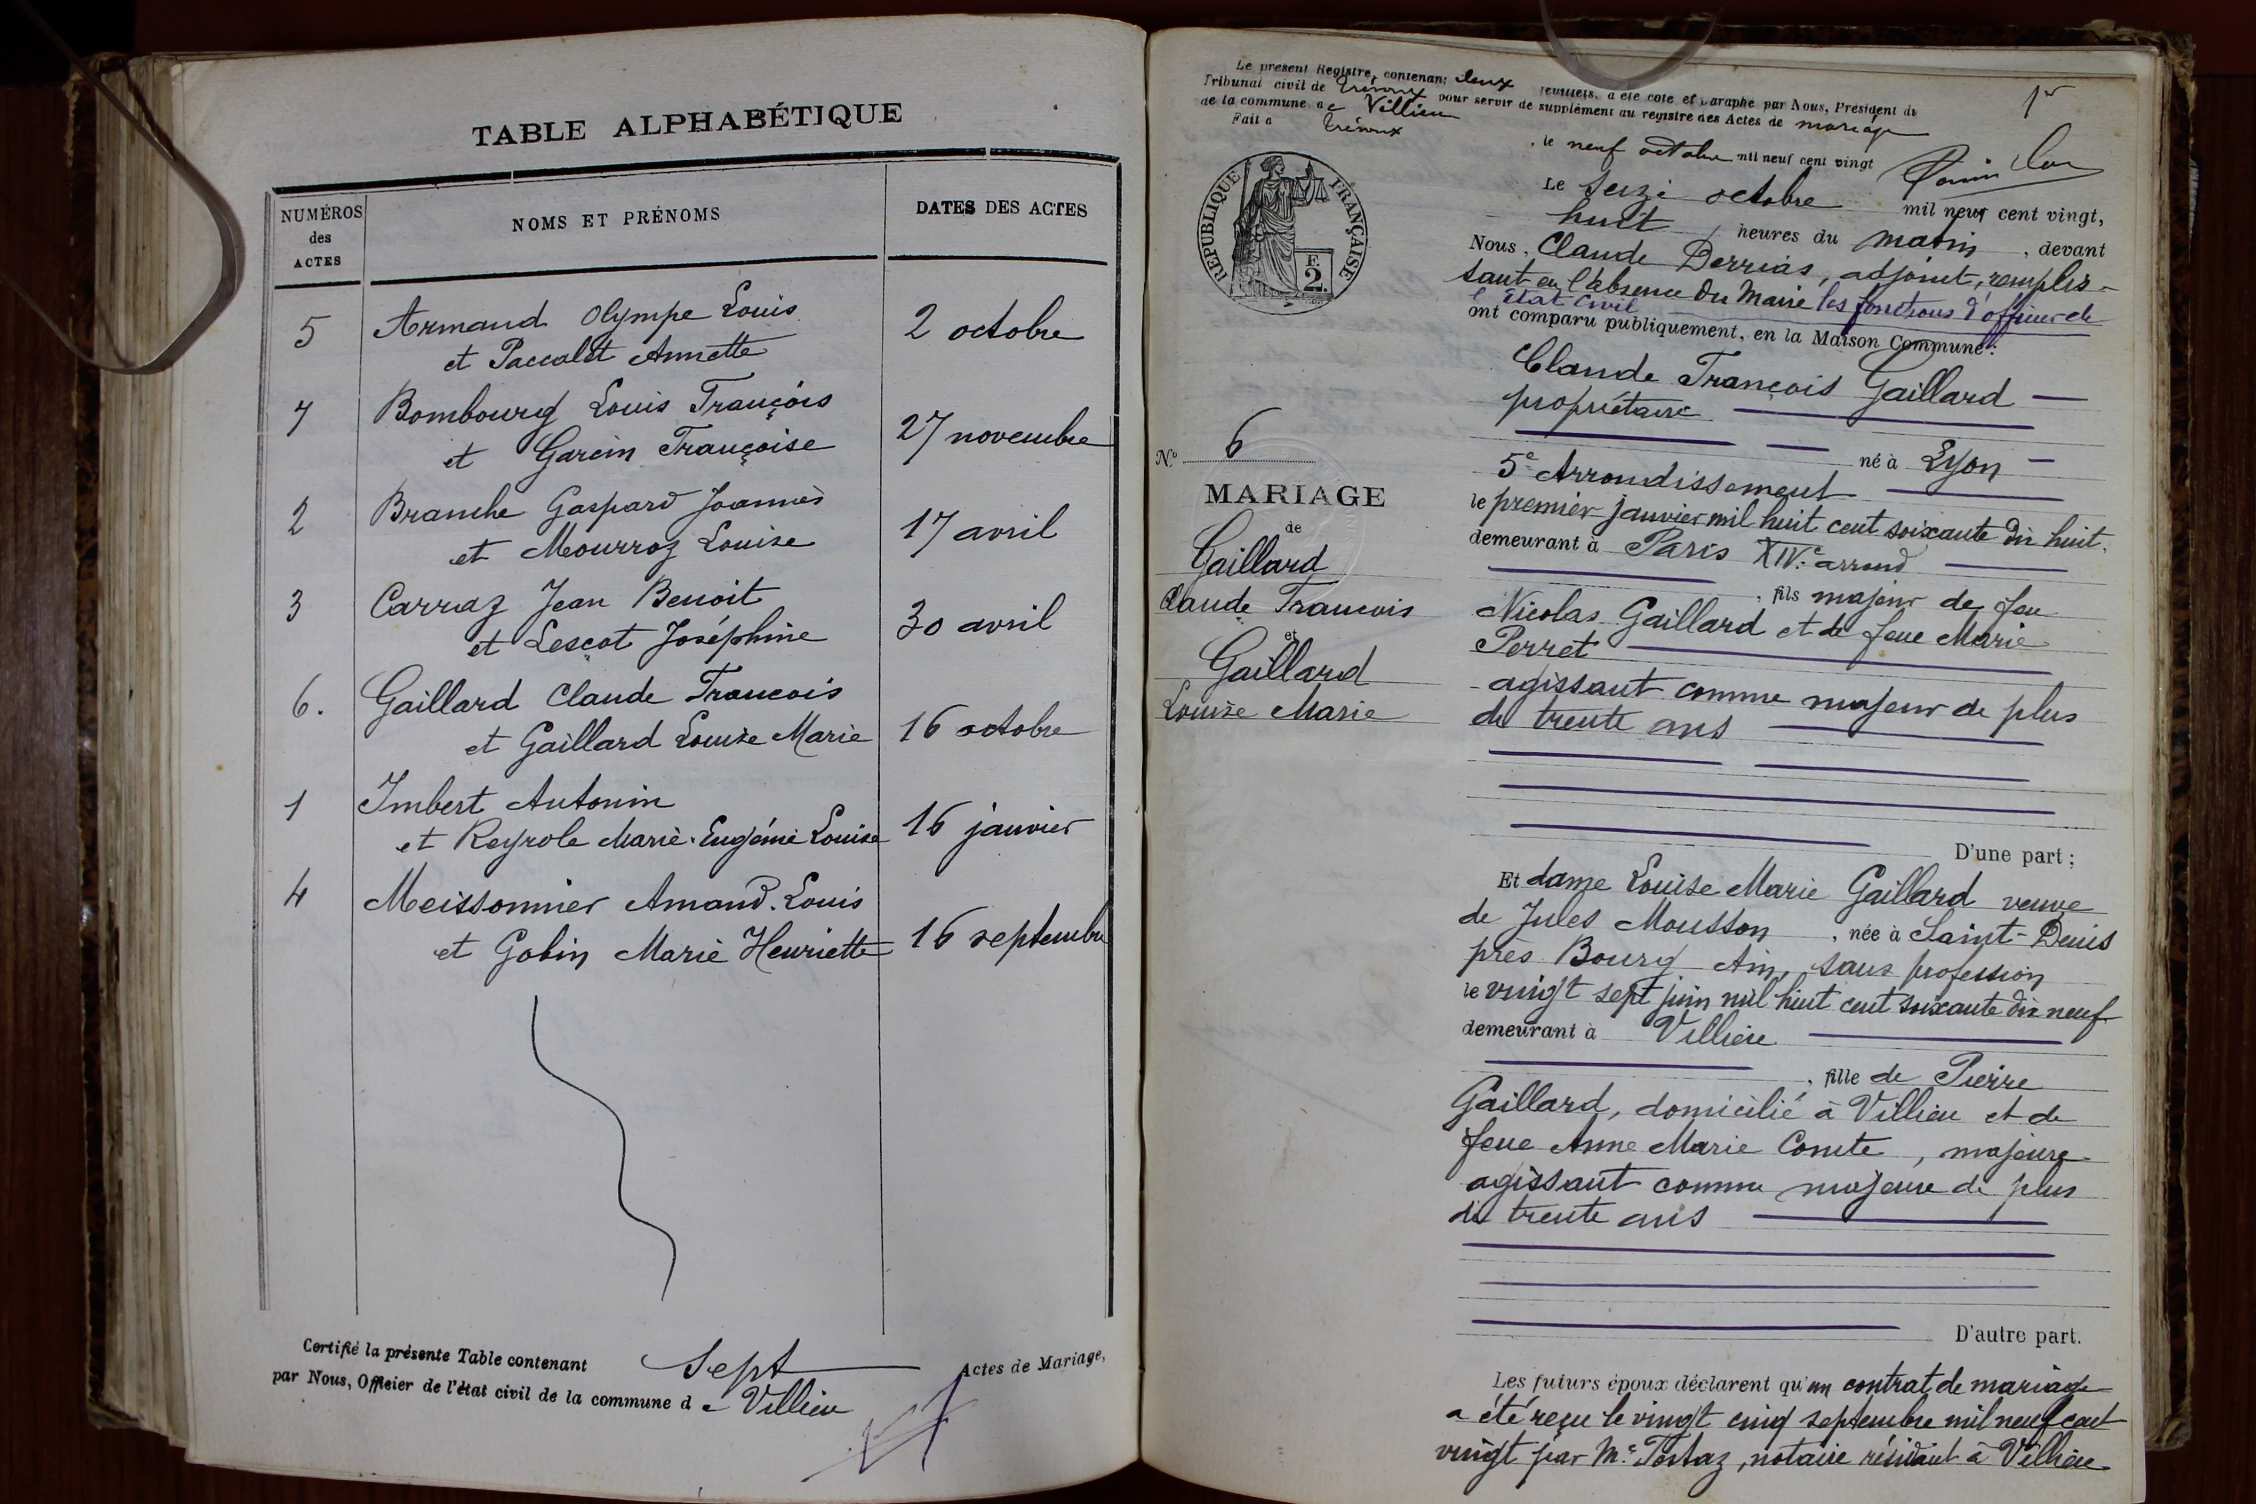 TABLE ALPHABÉTIQUE
NUMÉROS des ACTES
NOMS ET PRÉNOMS
DATES DES ACTES
5 Armand Olympe Louis
et Paccalet Annette 2 octobre
7 Bombourg Louis François
et Garcin Françoise 27 novembre
2 Branche Gaspard Joannès
et Mourroz Louise 17 avril
3 Carraz Jean Benoit
et Lescot Joséphine 30 avril
6. Gaillard Claude Francois
et Gaillard Louise Marie 16 octobre
1 Imbert Antonin
et Reyrole Marie-Eugénie Louise 16 janvier
4 Meissonnier Amand-Louis
et Gobin Marie Henriette 16 septembre
Certifié la présente Table contenant sept Actes de Mariage,
par Nous, Officier de l'état civil de la commune de Villieu
Le présent Registre, contenant deux feuillets, a été coté et paraphé par Nous, Président du
Tribunal civil de Trévoux pour servir de supplément au registre des Actes de mariage
de la commune de Villieu
Fait à Trévoux
, le neuf octobre mil neuf cent vingt
1er
RÉPUBLIQUE FRANÇAISE
F.
2.
Le seize octobre mil neuf cent vingt,
huit heures du matin, devant
Nous, Claude Derrias, adjoint, remplis-
sant en l'absence du Maire les fonctions d'officier de
l'état civil
ont comparu publiquement, en la Maison Commune:
Claude François Gaillard
propriétaire
né à Lyon
5e Arrondissement
le premier janvier mil huit cent soixante dix huit.
demeurant à Paris XIVe arrond
, fils majeur de feu
Nicolas Gaillard et de feue Marie
Perret
agissant comme majeur de plus
de trente ans
D'une part ;
N° 6
MARIAGE
de
Gaillard
Claude Francois
et
Gaillard
Louise Marie
Et dame Louise Marie Gaillard veuve
de Jules Mousson, née à Saint-Denis
près Bourg Ain, sans profession
le vingt sept juin mil huit cent soixante dix neuf
demeurant à Villieu
, fille de Pierre
Gaillard, domicilié à Villieu et de
feue Anne Marie Comte, majeure
agissant comme majeure de plus
de trente ans
D'autre part.
Les futurs époux déclarent qu'un contrat de mariage
a été reçu le vingt cinq septembre mil neuf cent
vingt par Me Tortaz, notaire résidant à Villieu